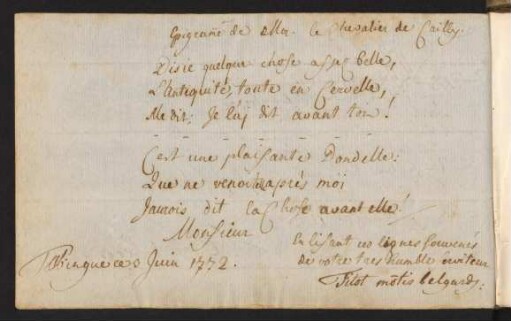 Epigram̃e de Mr. le Chevalier de Cailly.
Disie quelque chose assez belle,
L'antiquité, toute en Cervelle,
Me dit: Je l'aj dit avant toy!
C'est une plaisante Dondelle:
Que ne venoit après moi
J'aurois dit la Chose avant elle!
Monsieur
En lisant ces lignes souvenés
de votre tres humble serviteur
ce 3 Juin 1772.